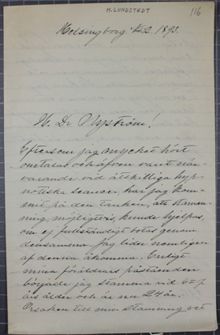 M. LUNDSTEDT
116
Helsingborg 1893.
H. Dr Nyström!
Eftersom jag mycket hört
omtalas och äfven varit när-
varande vid åtskilliga hyp-
notiska seanser, har jag kom-
mit på den tanken, att stamm-
ning möjligtvis kunde hjelpas,
om ej fullständigt botas genom
densamma. Jag lider nemligen
af denna åkomma. Enligt
mina föräldrars påstående
började jag stamma vid 6 à 7
års ålder och är nu 24 år.
Orsaken till min stamning vet